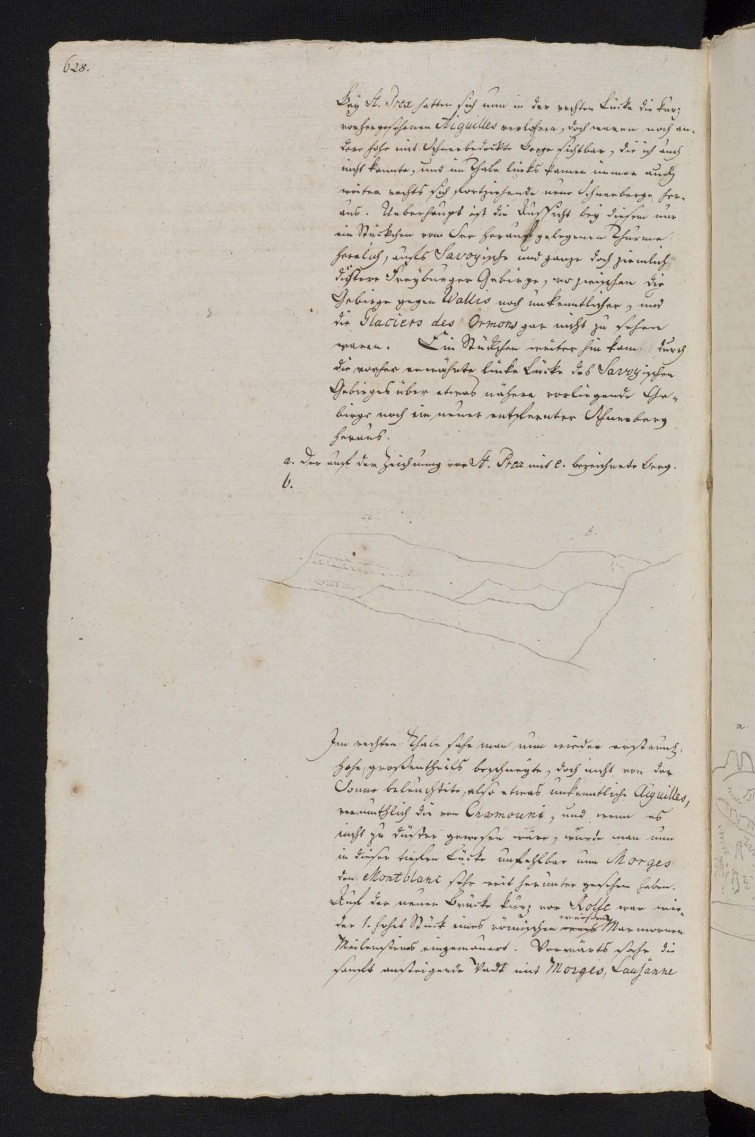 628.
Bey St. Prex hatten sich nun in der rechten Lücke die kurz
vorhergesehenen Aiguilles verlohren, doch waren noch an-
dere hohe mit Schnee bedeckte Berge sichtbar, die ich auch
nicht kannte, und im Thale links kamen immer auch
weiter rechts sich fortziehende neue Schneeberge her-
aus. Ueberhaupt ist die Aussicht bey diesem nur
ein Stückchen vom See herauf gelegenen Thurme
herrlich, aufs Savoyische und ganze doch ziemlich
düstere Freyburger Gebirge, wo zwischen die
Gebirge gegen Wallis noch unkenntlicher, und
die Glaciers des Ormons gar nicht zu sehen
waren. Ein Stückchen weiter hin kam durch
die vorher erwähnte linke Lücke des Savoyischen
Gebirges über etwas nähere vorliegende Ge-
birge noch ein neuer entfernter Schneeberg
heraus.
a. Der auf der Zeichnung vor St. Prex mit c. bezeichnete Berg.
b.
a. b.
Im rechten Thale sahe man nun wieder erstaunl:
hohe, großentheils beschneyte, doch nicht von der
Sonne beleuchtete, also etwas unkenntliche Aiguilles,
vermuthlich die von Chamouni, und wenn es
nicht zu düster gewesen wäre, würde man nun
in dieser tiefen Lücke unfehlbar um Morges
den Montblanc sehr weit herunter gesehen haben.
Auf der neuen Brücke kurz vor Rolle war wie-
der 1. hohes Stück eines römischen weißen Marmornen
Meilensteins eingemauert. Vorwärts sahe die
sanft ansteigende Vadt mit Morges, Lausanne
a